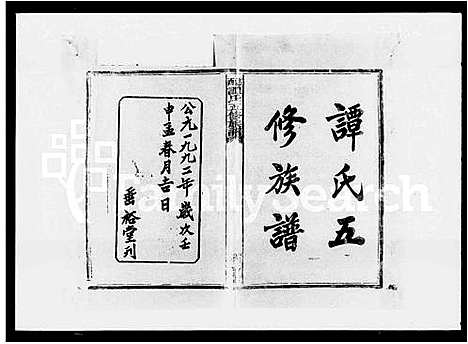 譚氏五
修族譜
公元一九九二年歲次壬
申孟春月吉日
垂裕堂刊
FamilySearch